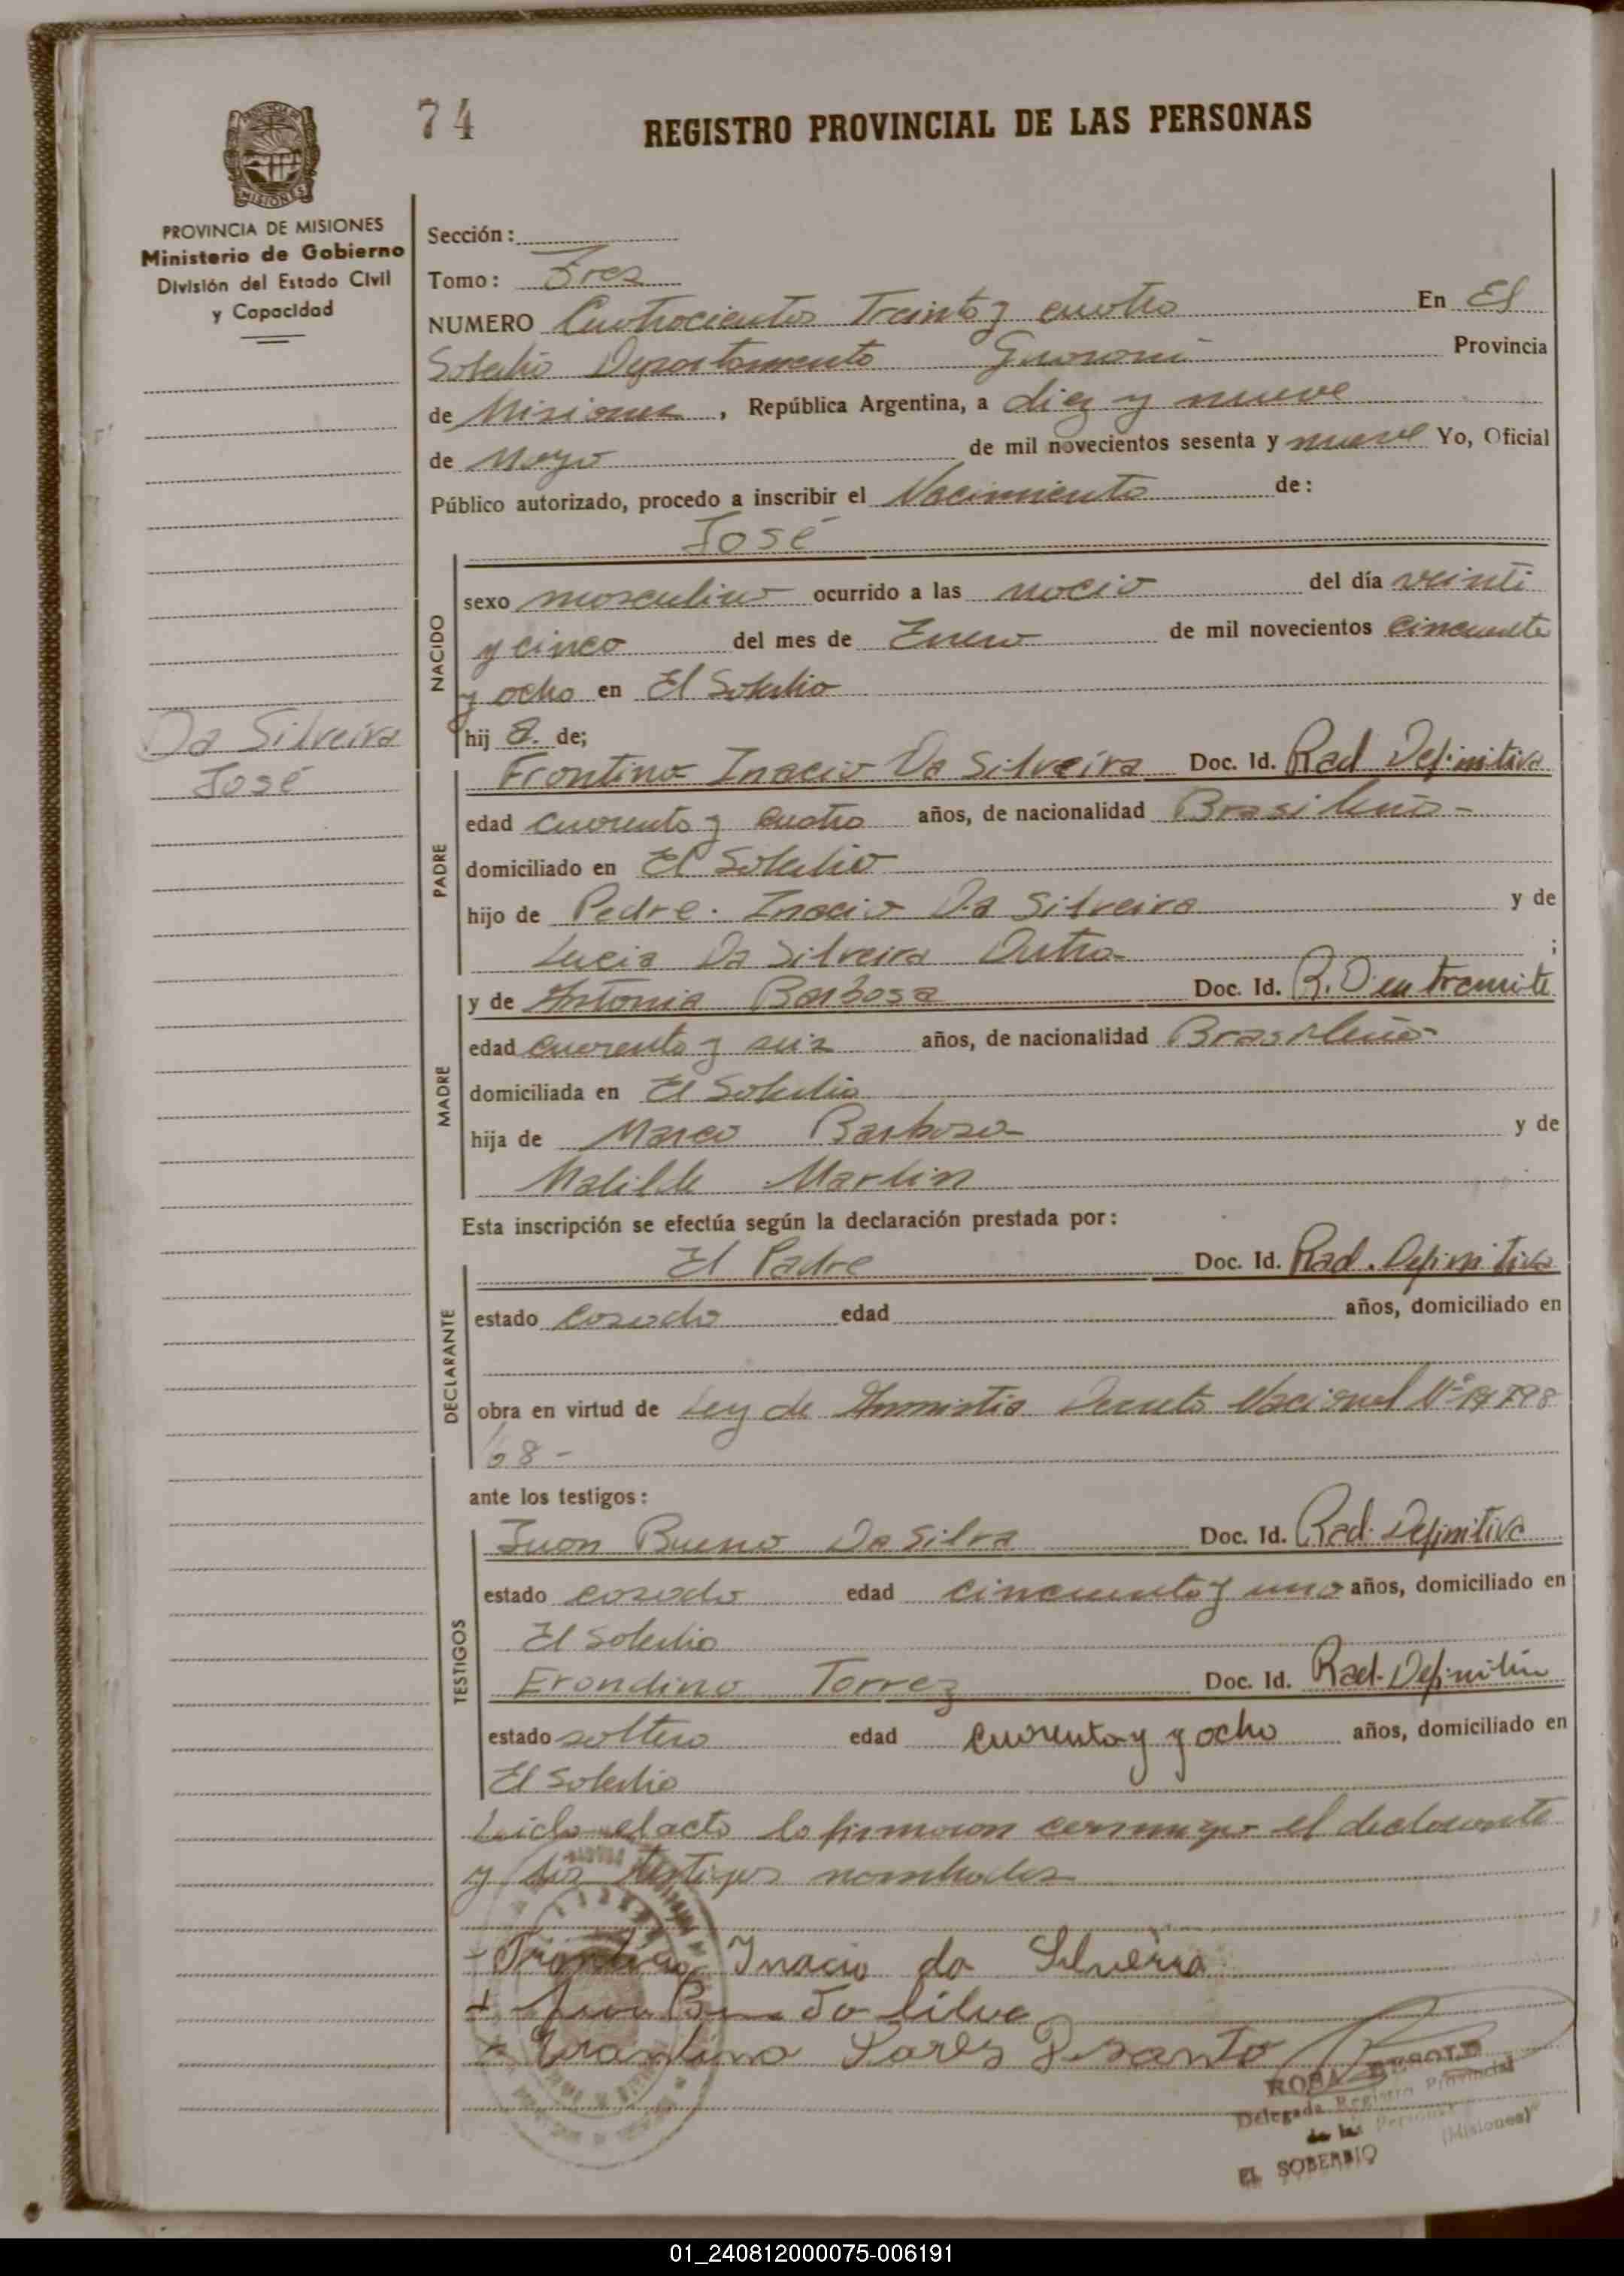 74
REGISTRO PROVINCIAL DE LAS PERSONAS
MISIONES
PROVINCIA DE MISIONES
Ministerio de Gobierno
División del Estado Civil
y Capacidad
Sección:
Tomo: Tres
NUMERO Cuatrocientos Treinta y cuatro En El
Soberbio Departamento Guarani Provincia
de Misiones, República Argentina, a diez y nueve
de Mayo de mil novecientos sesenta y nueve Yo, Oficial
Público autorizado, procedo a inscribir el Nacimiento de:
José
NACIDO
sexo masculino ocurrido a las del día veinti
y cinco del mes de Enero de mil novecientos cincuenta
y ocho en El Soberbio
hij o de;
Da Silveira
José
PADRE
Frontino Inacio Da Silveira Doc. Id. Rad Definitiva
edad cuarenta y cuatro años, de nacionalidad Brasileña-
domiciliado en El Soberbio
hijo de Pedro Inacio Da Silveira y de
Lucia Da Silveira Dutra- ;
MADRE
y de Antonia Barbosa Doc. Id. R. D en tramite
edad cuarenta y seis años, de nacionalidad Brasileña-
domiciliada en El Soberbio
hija de Marco Barboza y de
Matilde Martin
Esta inscripción se efectúa según la declaración prestada por:
DECLARANTE
El Padre Doc. Id. Rad. Definitiva
estado casado edad años, domiciliado en
obra en virtud de Ley de Amnistia Decreto Nacional Nº
68-
ante los testigos:
TESTIGOS
Juan Bueno Da Silva Doc. Id. Rad. Definitiva
estado casado edad cincuenta y uno años, domiciliado en
El Soberbio
Erondino Torrez Doc. Id. Rad. Definitiva
estado soltero edad cuarenta y y ocho años, domiciliado en
El Soberbio
Leido el acto lo firmaron conmigo el declarante
y los testigos nombrados
Frontino Inacio da Silveira
da Silva
Delegada Registro Provincial
de las Personas
EL SOBERBIO (Misiones)
01_240812000075-006191